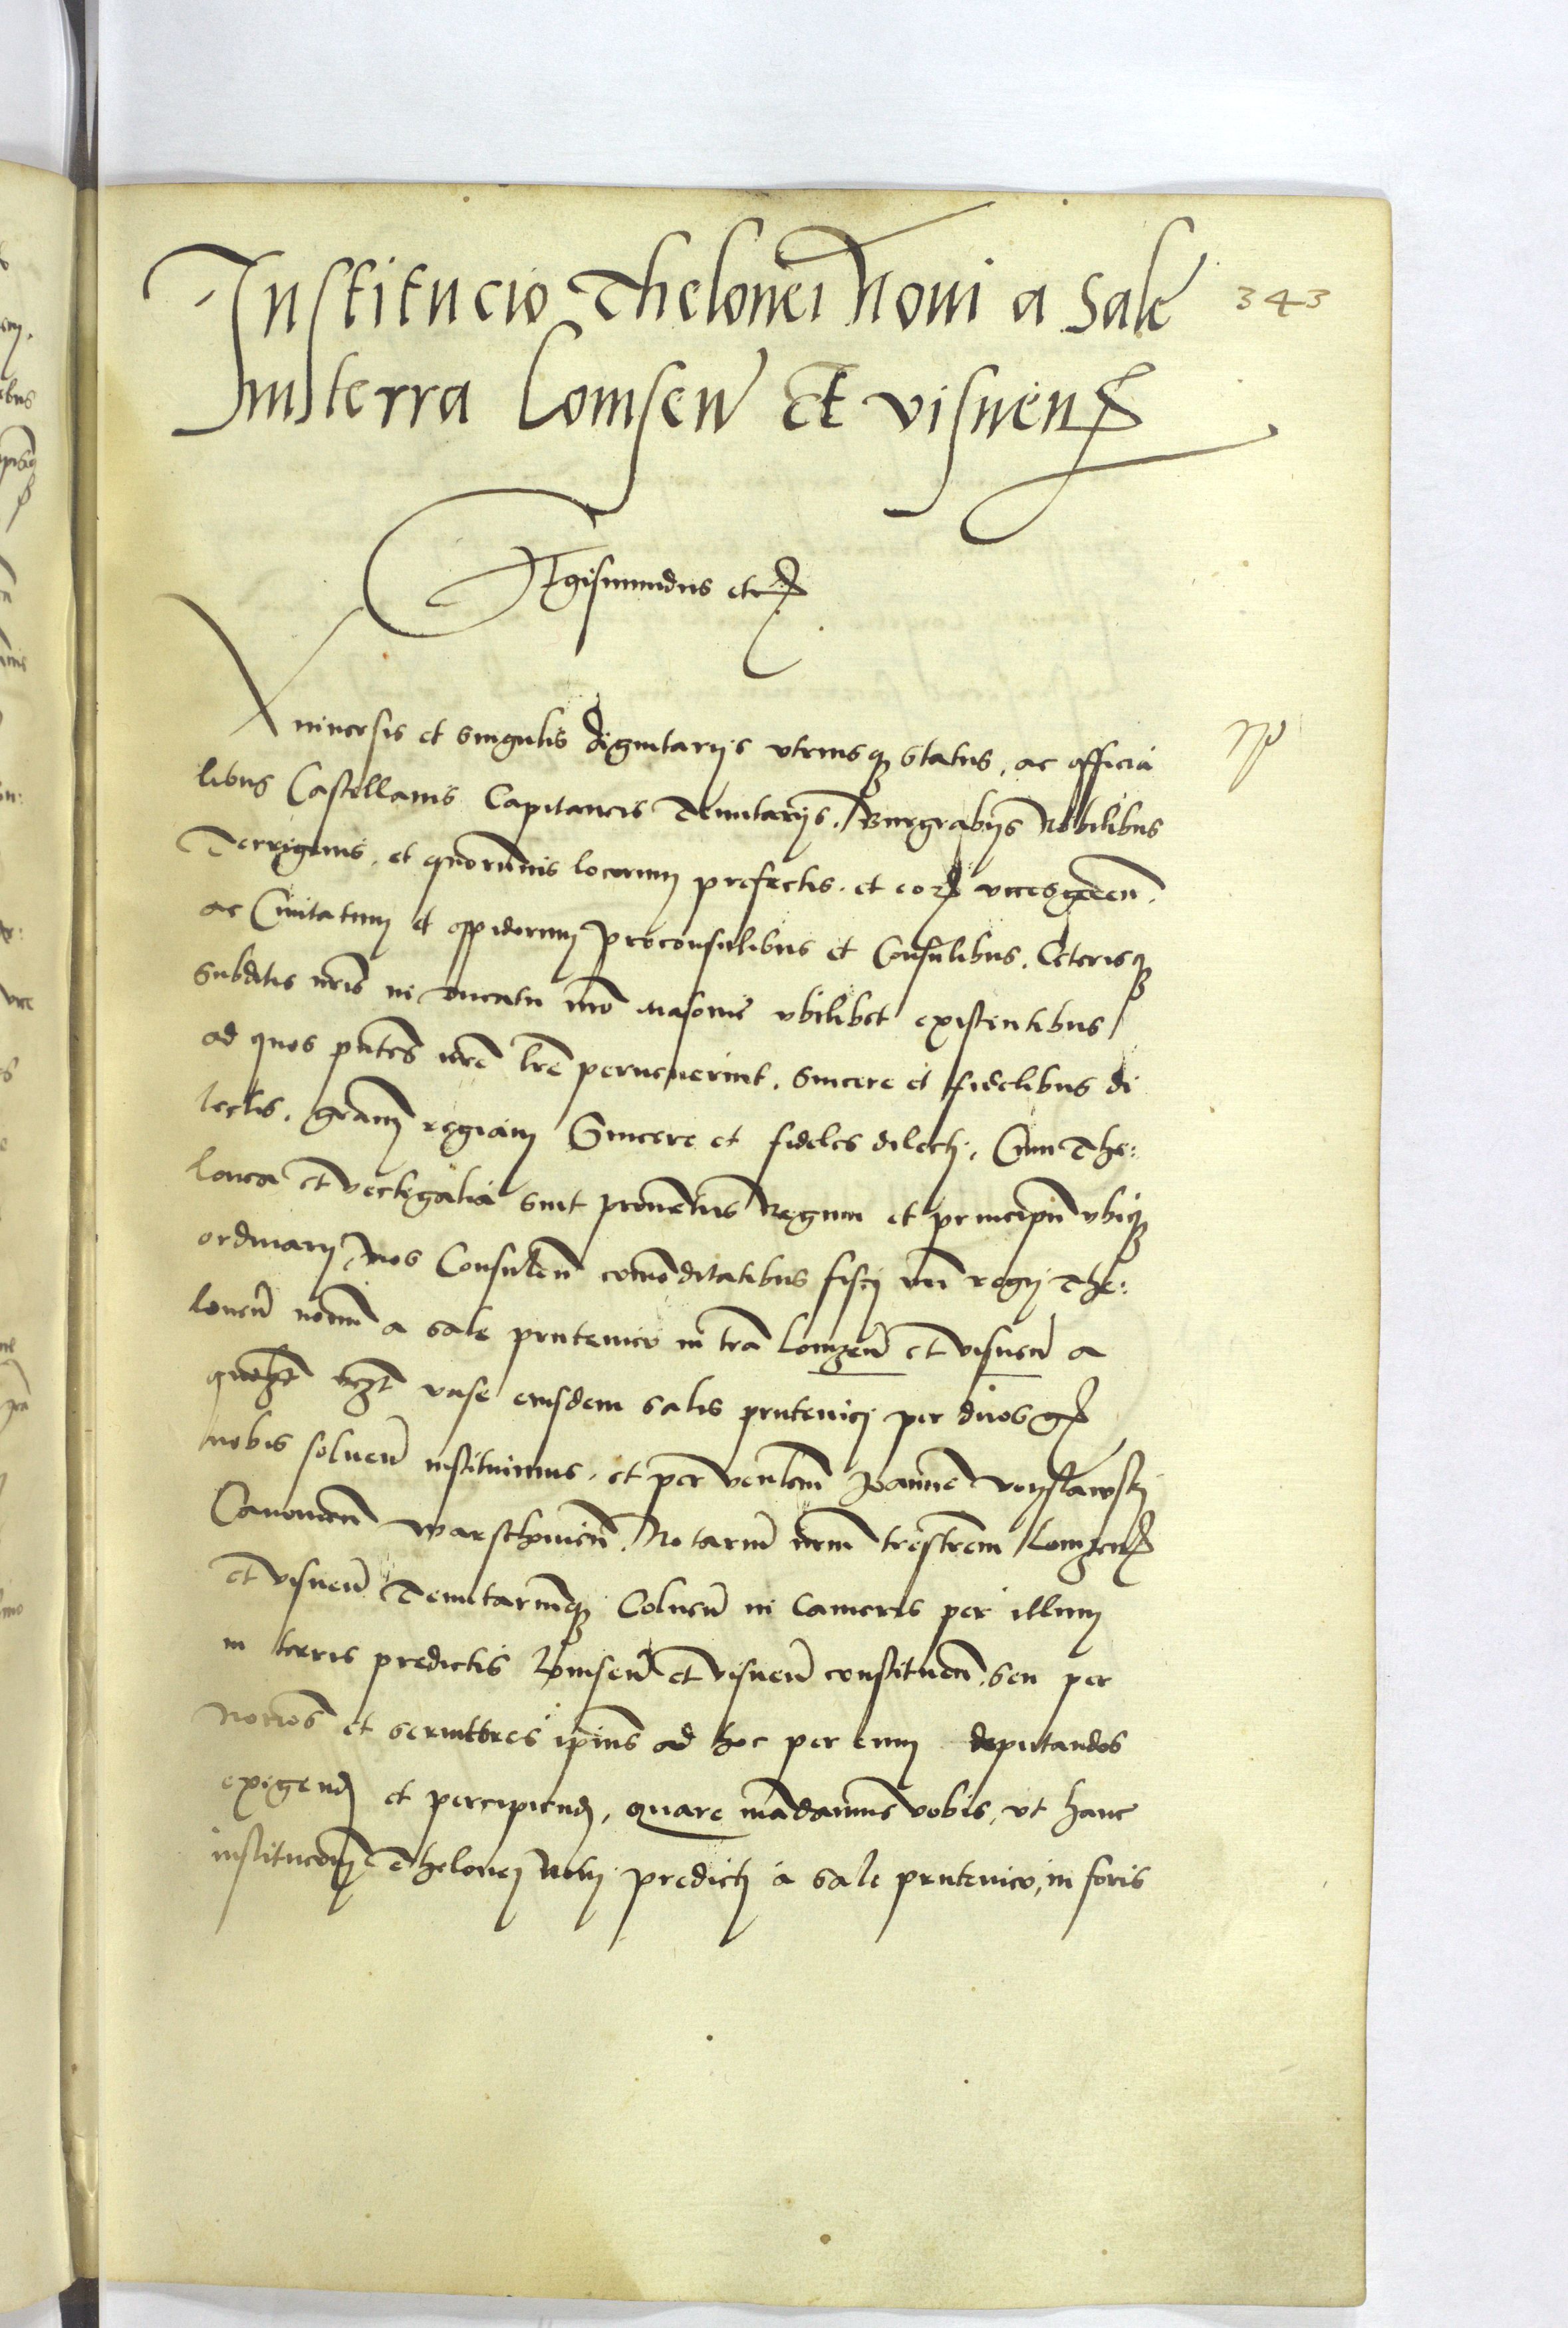 Institucio Thelonei Noui a sale
343
In terra Lomsen̄ Et visnen̄
Sigismundus etc
Vniuersis et singulis dignitarijs vtriusq̧ status, ac officia
libus Castellanis Capitaneis Tenutarijs, Burgrabijs Nobilibus
Terrigenis, et quorumuis locorum prefectis, et eoꝝ vicesgeren̄,
ac Ciuitatum et oppidorum proconsulibus et Consulibus, Ceterisq̧
subditis nr̄is in ducatu nr̄o Masouie vbilibet existentibus
ad quos pn̄tes nr̄e lr̄e peruenerint, sincere et fidelibus di
lectis, gr̄am regiam Sincere et fideles dilecti, Cum The:
lonea et vectigalia sint prouentus Regum et principū vbiq̧
ordinarij, nos Consulen̄ com̄oditatibus fisci nr̄i regij The:
loneū nouū a sale prutenico in tr̄a lomzen̄ et visnen̄ a
vase eiusdem salis prutenici per duos gꝭ
nobis soluen̄ instituimus, et per ven̄lem Joannē voyslawskj
Canonicū warschouien̄, Notariū nr̄m tr̄estrem lomzen̄
et visnen̄ Tenutariūq̧ Colnen̄ in Cameris per illum
in terris predictis lomsen̄ et visnen̄ constituen̄, seu per
et seruitores ip̄ius ad hoc per eum deputandos
exigend̄ et percipiend̄, quare mādamus vobis, vt hanc
institucōem Thelonej Noui predictj a sale prutenico, in foris